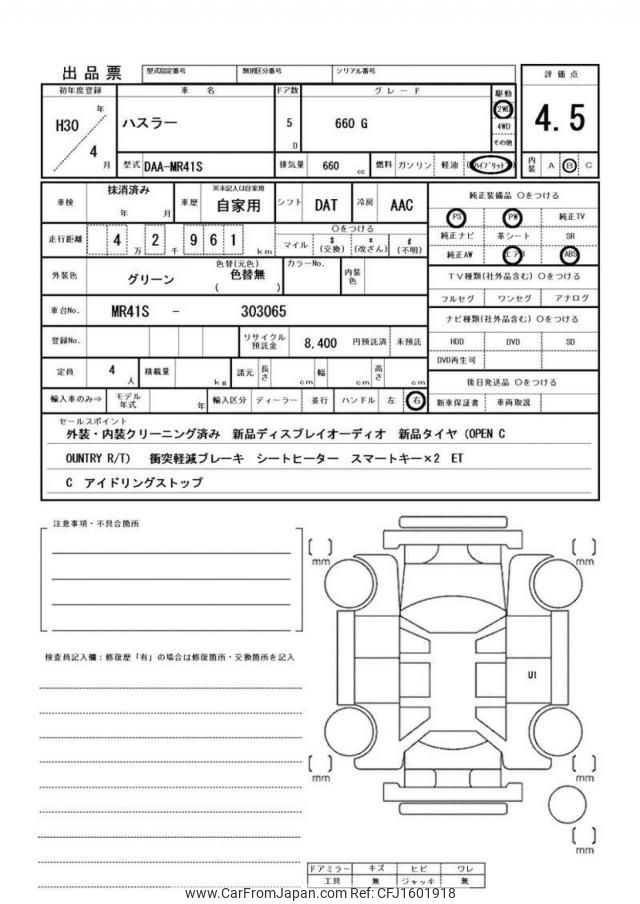 出品票 型式指定番号 類別区分番号 シリアル番号
評価点
4.5
初年度登録 車名 ドア数 グレード 駆動
H30 年 4 月
ハスラー 5 D 660 G
2WD
4WD
その他
型式 DAA-MR41S 排気量 660 cc 燃料 ガソリン 軽油 (ハイブリット) 内装 A B C
車検 抹消済み 年 月 車歴 ※未記入は自家用 自家用 シフト DAT 冷房 AAC
走行距離 4万 2千 9 6 1 km
〇をつける
マイル $(交換) *(改ざん) #(不明)
外装色 グリーン 色替(元色) 色替無 ( ) カラーNo. 内装色
車台No. MR41S - 303065
登録No. リサイクル預託金 8,400 円預託済 未預託
定員 4 人 積載量 kg 諸元 長さ cm 幅 cm 高さ cm
輸入車のみ⇒ モデル年式 年 輸入区分 ディーラー 並行 ハンドル 左 右
純正装備品 〇をつける
PS PW 純正TV
純正ナビ 革シート SR
純正AW エアB ABS
TV種類(社外品含む) 〇をつける
フルセグ ワンセグ アナログ
ナビ種類(社外品含む) 〇をつける
HDD DVD SD
DVD再生可
後日発送品 〇をつける
新車保証書 車両取説
セールスポイント
外装・内装クリーニング済み 新品ディスプレイオーディオ 新品タイヤ (OPEN C
OUNTRY R/T) 衝突軽減ブレーキ シートヒーター スマートキー×2 ET
C アイドリングストップ
注意事項・不具合箇所
検査員記入欄:修復歴「有」の場合は修復箇所・交換箇所を記入
[ ] mm
[ ] mm
U1
[ ] mm
[ ] mm
[ ] mm
ドアミラー キズ ヒビ ワレ
工具 無 ジャッキ 無
www.CarFromJapan.com CFJ1601918